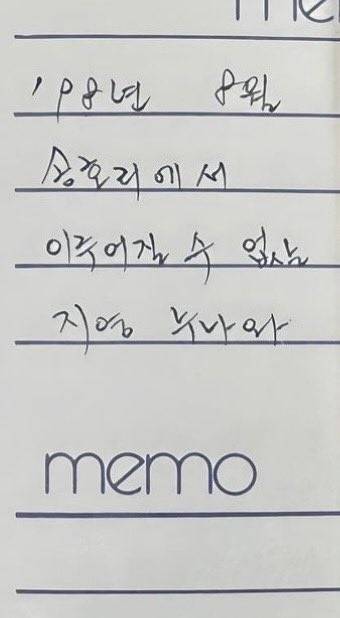 '98년 8월
송호리에서
이루어질 수 없는
지영 누나와
memo